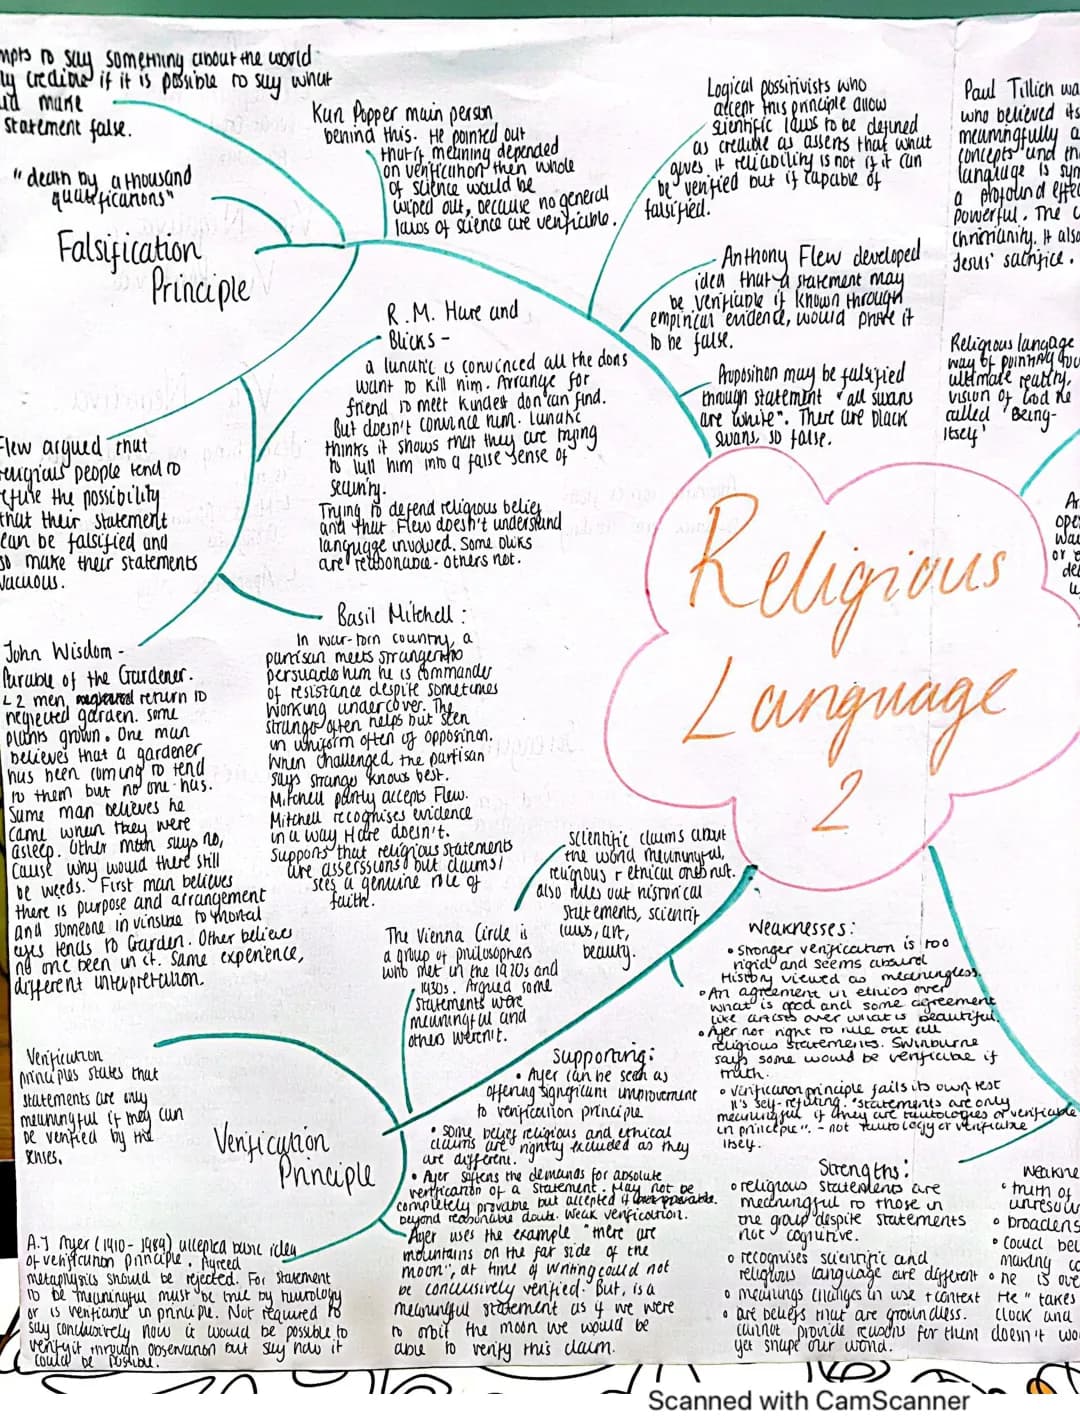 mpts to say something about the world
ly credible if it is possible to say what
ld make
statement false.
"death by a thousand
qualifications"
Falsification
Principle
Karl Popper main person
behind this. He pointed out
that if meaning depended
on verification then whole
of science would be
wiped out, because no general
laws of science are verifiable.
Logical possitivists who
accept this principle allow
scientific laws to be defined
as credible as assens that what
gives it reliability is not if it can
be verified but if capable of
falsified.
Paul Tillich wa
who believed its
meaningfully a
concepts and th
language is sym
a profound effe
powerful. The C
christianity. It also
Jesus' sacrifice.
Anthony Flew developed
idea that a statement may
be verifiable if known through
empirical evidence, would prove it
to be false.
Proposition may be falsified
through statement "all swans
are white". There are black
swans, so false.
Religious langage
way of pointing tow
ultimate reality.
vision of God he
called 'Being-
Itself'
R.M. Hare and
Blicks -
a lunatic is convinced all the dons
want to kill him. Arrange for
friend to meet kindest don can find.
But doesn't convince him. Lunatic
thinks it shows that they are trying
to lull him into a false sense of
security.
Trying to defend religious belief
and that Flew doesn't understand
language involved. Some bliks
are reasonable - others not.
Flew argued that
religious people tend to
refuse the possibility
that their statement
can be falsified and
so make their statements
vacuous.
Religious
Language
2
Basil Mitchell:
In war-torn country, a
partisan meets stranger who
persuade him he is commander
of resistance despite sometimes
working undercover. The
stranger often helps but seen
in uniform often of opposition.
When challenged the partisan
says stranger knows best.
Mitchell partly accepts Flew.
Mitchell recognises evidence
in a way Hare doesn't.
Supports that religious statements
are asserssions but claims/
sees a genuine role of
faith.
John Wisdom -
Parable of the Gardener.
2 men return to
neglected garden. Some
plants grown. One man
believes that a gardener
has been coming to tend
to them but no one has.
Same man believes he
came when they were
asleep. Other man says no,
cause why would there still
be weeds. First man believes
there is purpose and arrangement
and someone invinsible to mortal
eyes tends to Garden. Other believes
no one been in it. Same experience,
different interpretation.
Scientific claims about
the world meaningful,
religious + ethical ones not.
also rules out historical
statements, scientif
laws, art,
beauty.
The Vienna Circle is
a group of philosophers
who met in the 1920s and
1930s. Argued some
statements were
meaningful and
others weren't.
Verification
principles states that
statements are only
meaningful if they can
be verified by the
senses.
Verification
Principle
A.J Ayer (1910 - 1989) accepted basic idea
of verification principle. Agreed
metaphysics should be rejected. For statement
to be meaningful must be true by
or is verifiable in principle. Not required to
say conclusively how it would be possible to
verify it through observation but say how it
could be possible.
Supporting:
• Ayer can be seen as
offering significant improvement
to verification principle
• Some belief religious and ethical
claims are rightly excluded as they
are different.
• Ayer softens the demands for absolute
verification of a statement. May not be
completely provable but accepted if
beyond reasonable doubt. Weak verification.
Ayer uses the example "there are
mountains on the far side of the
moon", at time of writing could not
be conclusively verified. But, is a
meaningful statement as if we were
to orbit the moon we would be
able to verify this claim.
Weaknesses:
• Stronger verification is too
rigid and seems absurd
History viewed as meaningless.
• An agreement in ethics over
what is good and some agreement
like artists over what is beautiful.
• Ayer not right to rule out all
religious statements. Swinburne
says some would be verifiable if
truth.
• Verification principle fails its own test
It's self-refuting. "Statements are only
meaningful if they are tautologies or verifiable
in principle". - not tautology or verifiable
itself.
Strengths:
• religious statements are
meaningful to those in
the group despite statements
not cognitive.
• recognises scientific and
religious language are different
• meanings changes in use + context
• are beliefs that are groundless.
cannot provide reasons for them
yet shape our world.
Weakne
• truth of
unresolv
• broadens
• could bel
making co
• he is ove
He "takes
clock and
doesn't wo
Scanned with CamScanner